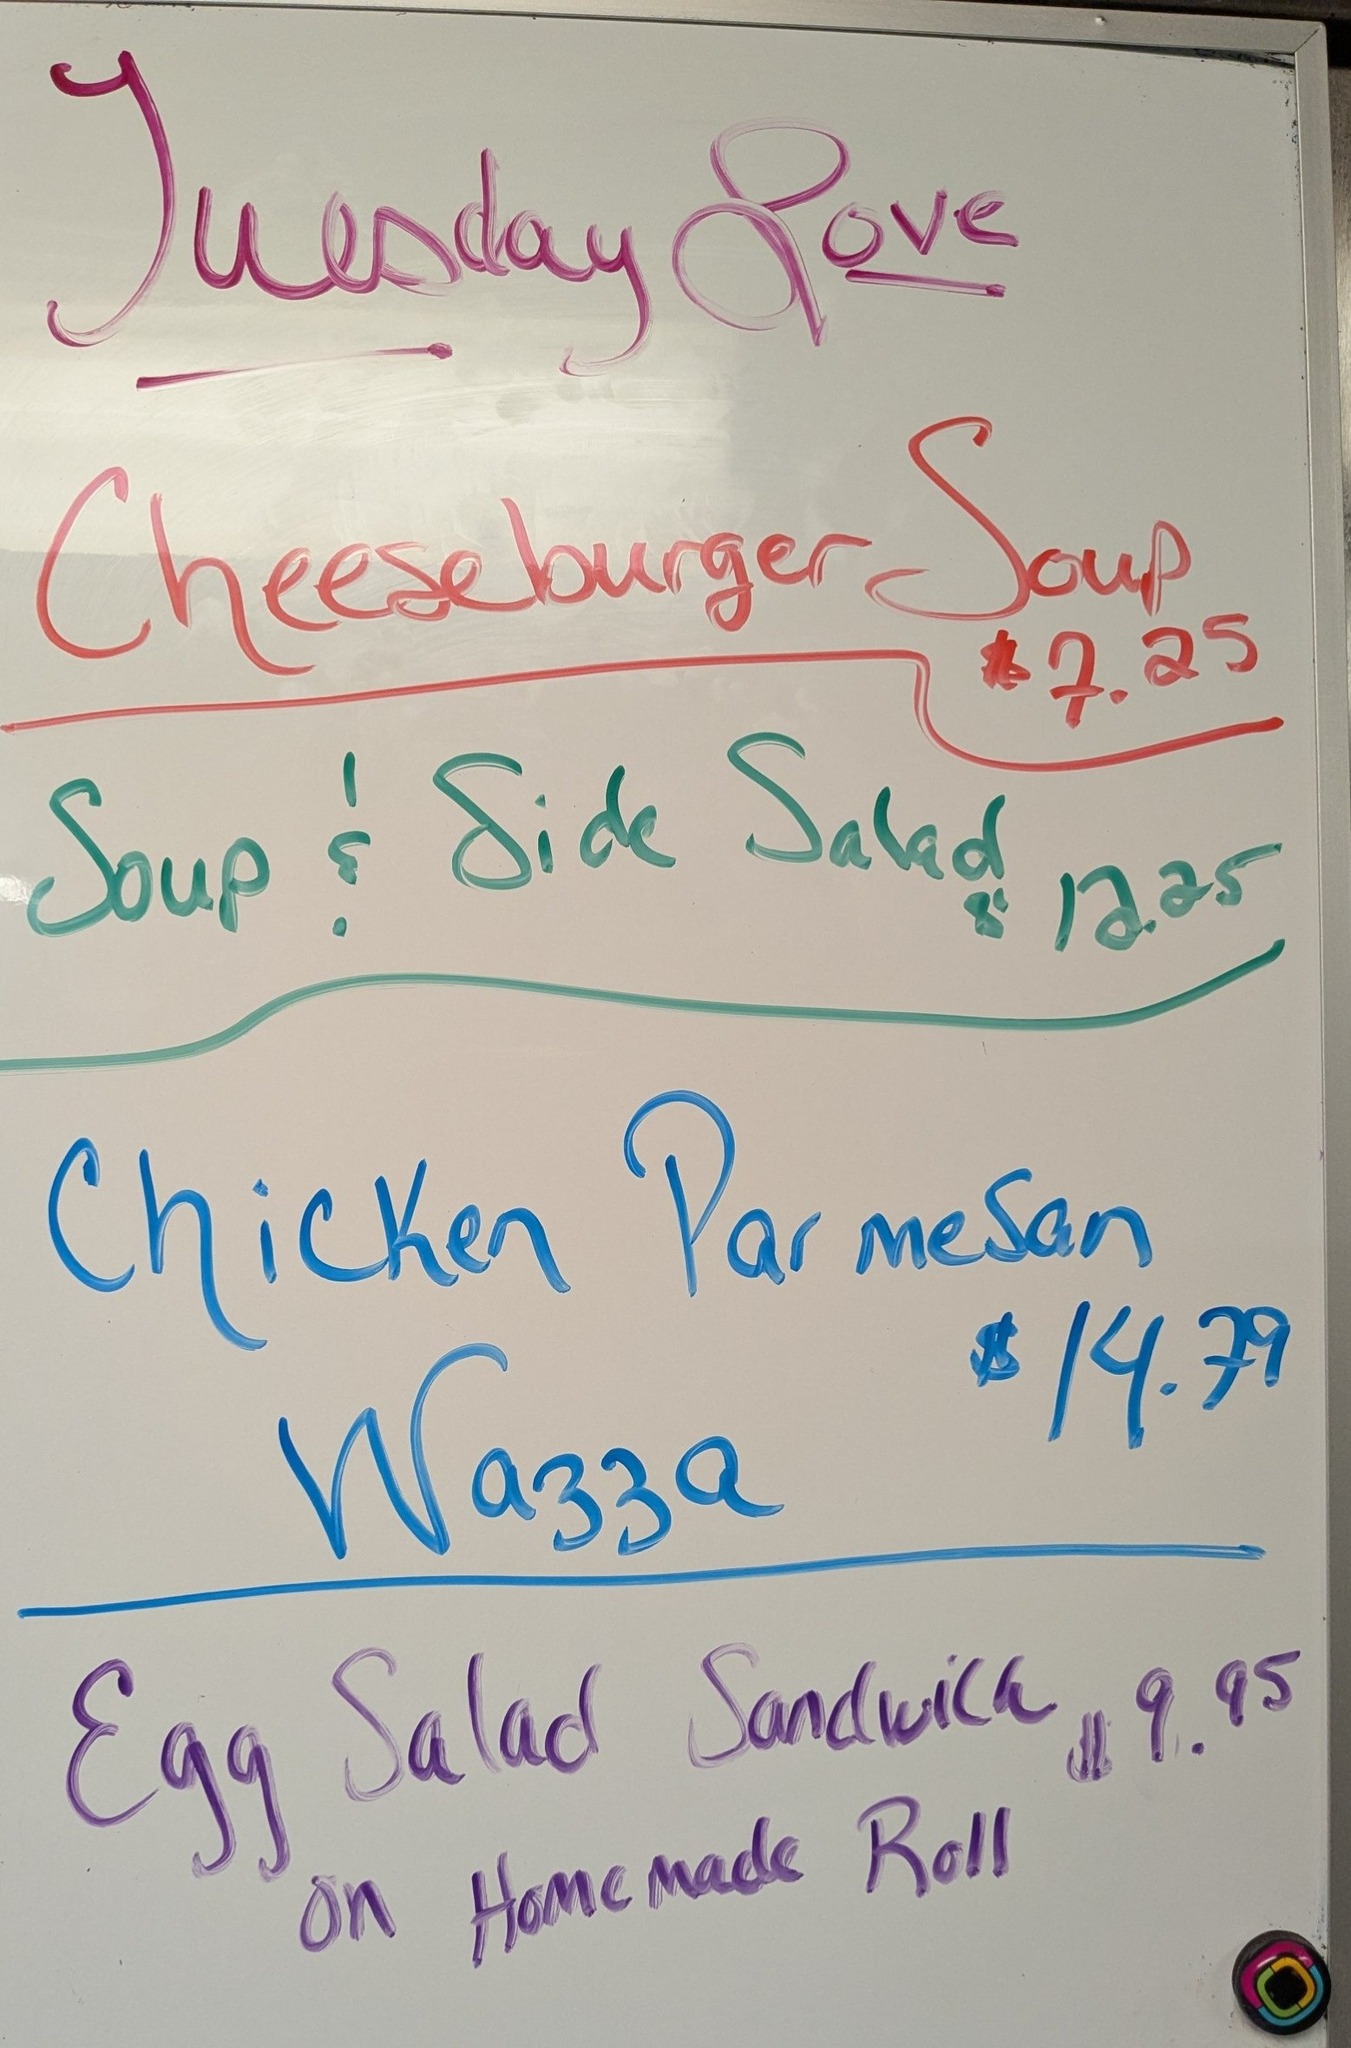 Tuesday Love
Cheeseburger Soup
$7.25
Soup & Side Salad
$12.25
Chicken Parmesan
$14.79
Wazza
Egg Salad Sandwich $9.95
on Homemade Roll